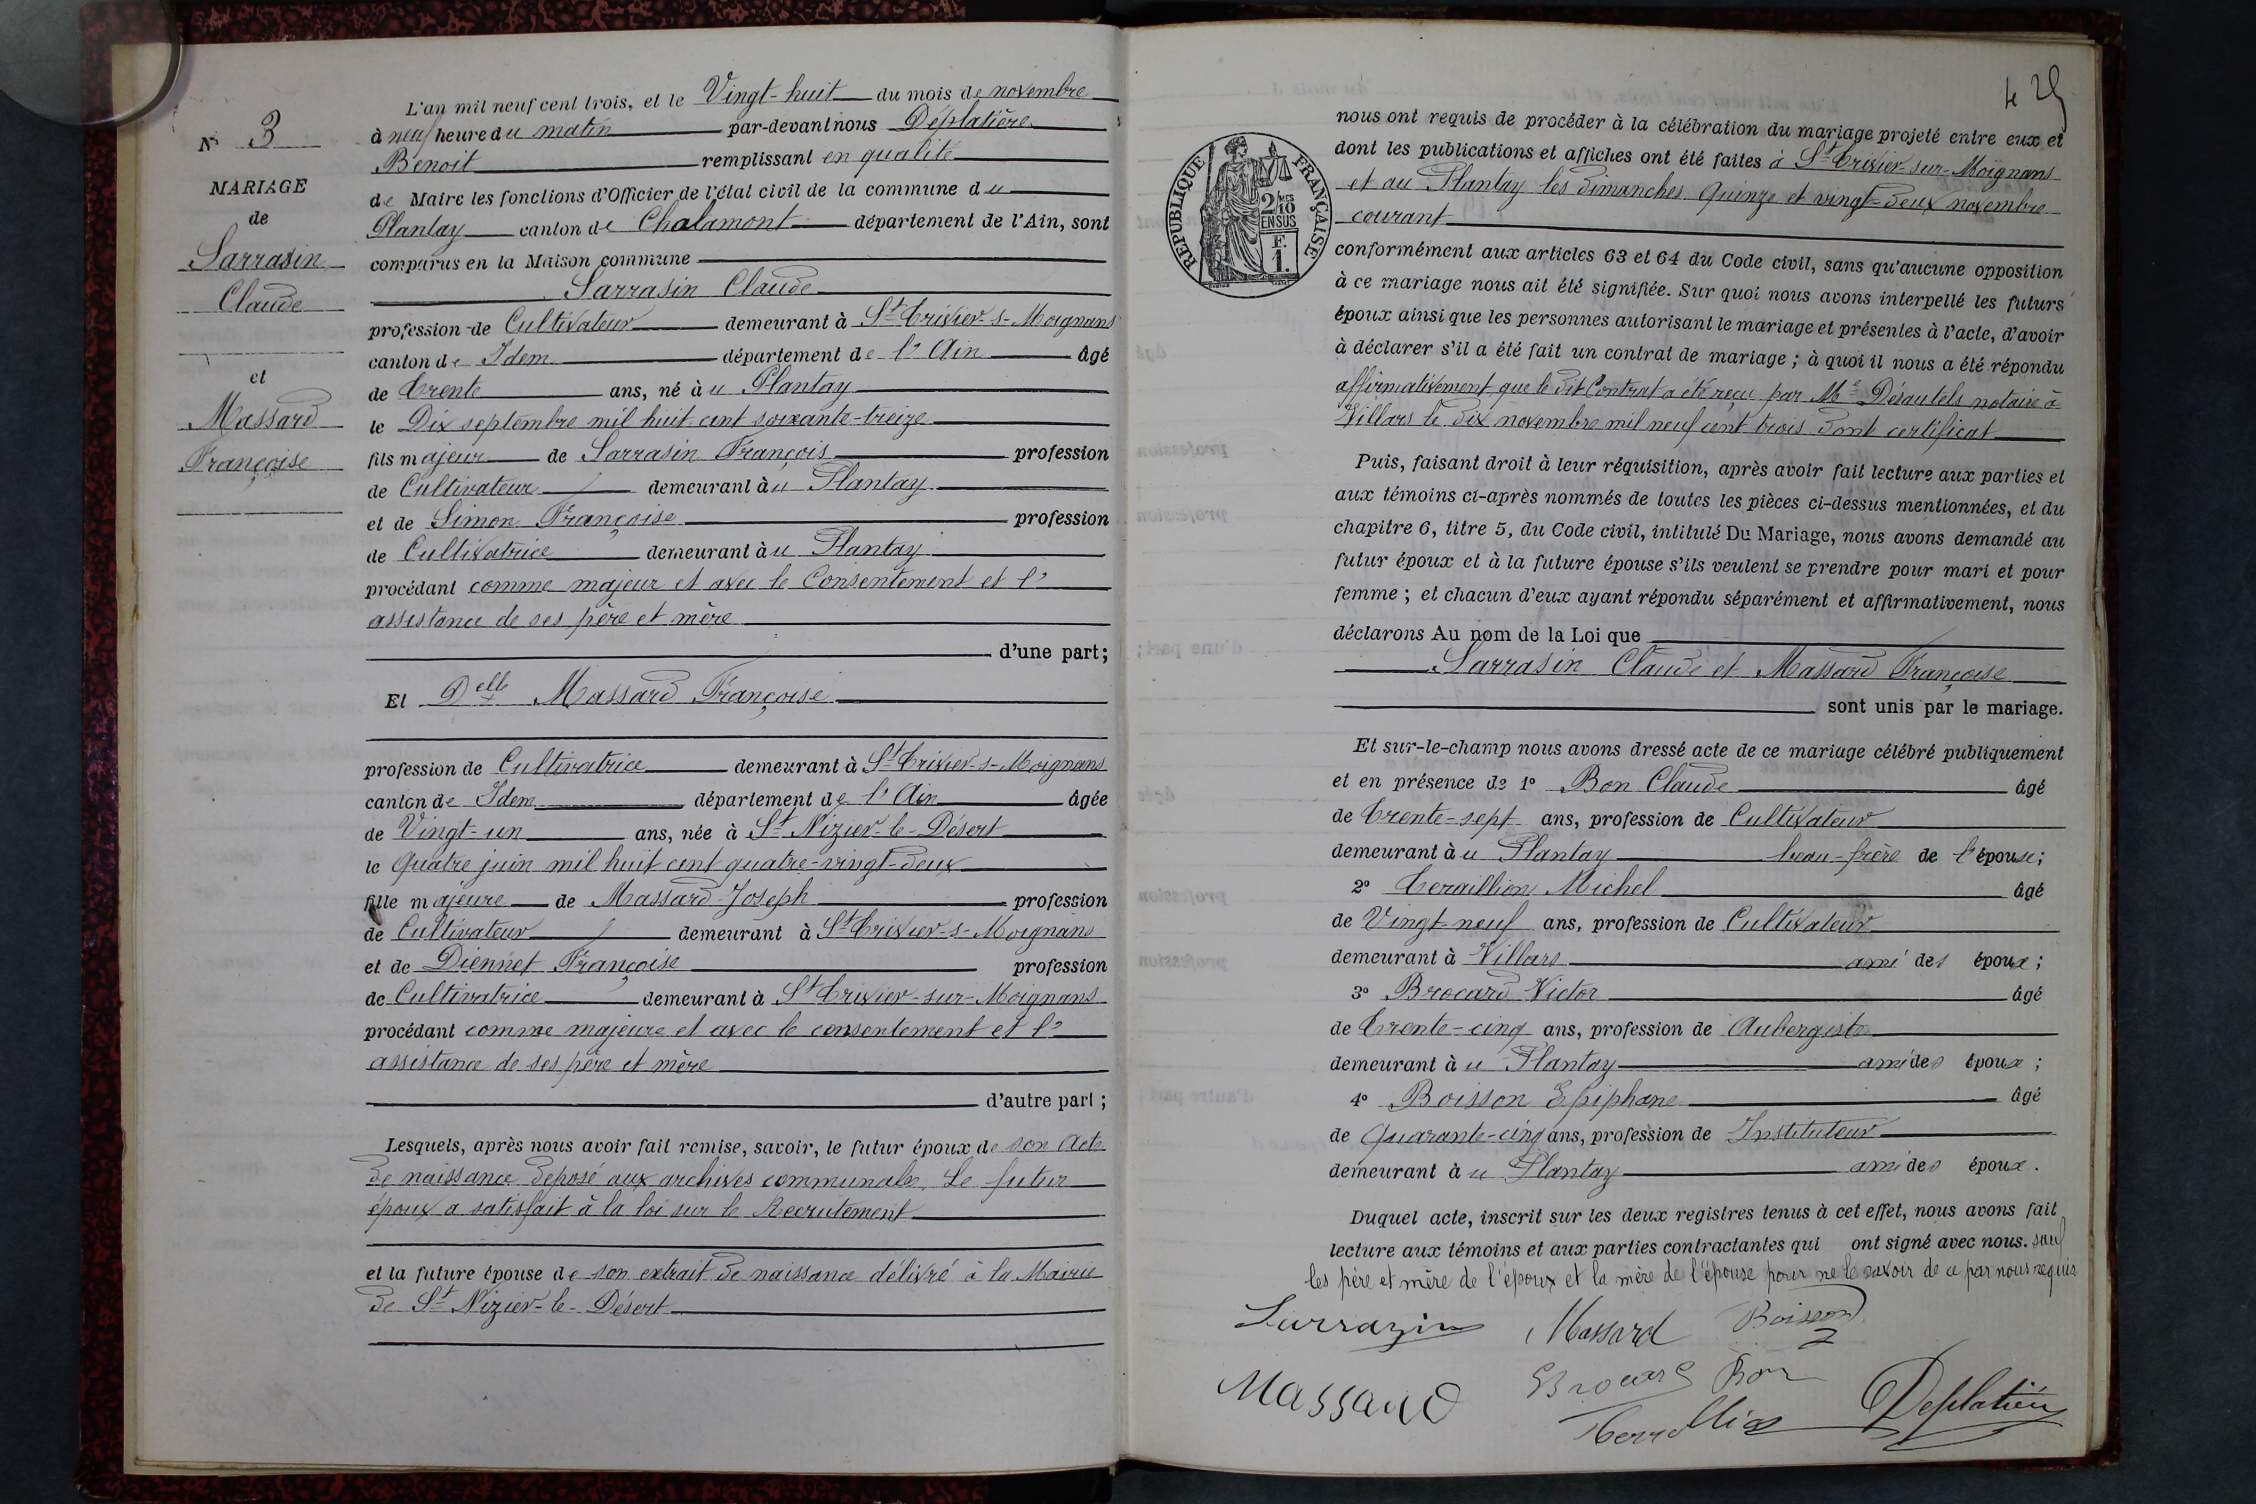 N° 3
MARIAGE
de
Sarrasin
Claude
et
Massard
Françoise
L'an mil neuf cent trois, et le Vingt-huit du mois de novembre
à neuf heure du matin par-devant nous Déplatière
Benoit remplissant en qualité
de Maire les fonctions d'Officier de l'état civil de la commune du
Plantay canton de Chalamont département de l'Ain, sont
comparus en la Maison commune
Sarrasin Claude
profession de Cultivateur demeurant à St Trivier-s-Moignans
canton de Idem département de l'Ain âgé
de Trente ans, né au Plantay
le Dix septembre mil huit cent soixante-treize
fils majeur de Sarrasin François profession
de Cultivateur demeurant au Plantay
et de Simon Françoise profession
de Cultivatrice demeurant au Plantay
procédant comme majeur et avec le Consentement et l'
assistance de ses père et mère
d'une part;
Et Delle Massard Françoise
profession de Cultivatrice demeurant à St Trivier-s-Moignans
canton de Idem département de l'Ain âgée
de Vingt-un ans, née à St Nizier-le-Désert
le Quatre juin mil huit cent quatre-vingt-deux
fille majeure de Massard Joseph profession
de Cultivateur demeurant à St Trivier-s-Moignans
et de Diennet Françoise profession
de Cultivatrice demeurant à St Trivier-sur-Moignans
procédant comme majeure et avec le consentement et l'
assistance de ses père et mère
d'autre part;
Lesquels, après nous avoir fait remise, savoir, le futur époux de son Acte
de naissance déposé aux archives communales. Le futur
époux a satisfait à la loi sur le Recrutement
et la future épouse de son extrait de naissance délivré à la Mairie
de St Nizier-le-Désert
429
RÉPUBLIQUE FRANÇAISE
2/10 EN SUS
F. 1.
nous ont requis de procéder à la célébration du mariage projeté entre eux et
dont les publications et affiches ont été faites à St Trivier-sur-Moignans
et au Plantay les dimanches Quinze et vingt-deux novembre
courant
conformément aux articles 63 et 64 du Code civil, sans qu'aucune opposition
à ce mariage nous ait été signifiée. Sur quoi nous avons interpellé les futurs
époux ainsi que les personnes autorisant le mariage et présentes à l'acte, d'avoir
à déclarer s'il a été fait un contrat de mariage; à quoi il nous a été répondu
affirmativement que le dit Contrat a été reçu par Me Désautels notaire à
Villars le dix novembre mil neuf cent trois dont certificat
Puis, faisant droit à leur réquisition, après avoir fait lecture aux parties et
aux témoins ci-après nommés de toutes les pièces ci-dessus mentionnées, et du
chapitre 6, titre 5, du Code civil, intitulé Du Mariage, nous avons demandé au
futur époux et à la future épouse s'ils veulent se prendre pour mari et pour
femme; et chacun d'eux ayant répondu séparément et affirmativement, nous
déclarons Au nom de la Loi que
Sarrasin Claude et Massard Françoise
sont unis par le mariage.
Et sur-le-champ nous avons dressé acte de ce mariage célébré publiquement
et en présence de 1° Bon Claude âgé
de Trente-sept ans, profession de Cultivateur
demeurant au Plantay beau-frère de l'épouse;
2° Teraillion Michel âgé
de Vingt-neuf ans, profession de Cultivateur
demeurant à Villars ami des époux;
3° Brocard Victor âgé
de Trente-cinq ans, profession de Aubergiste
demeurant au Plantay ami des époux;
4° Boisson Epiphane âgé
de Quarante-cinq ans, profession de Instituteur
demeurant au Plantay ami des époux.
Duquel acte, inscrit sur les deux registres tenus à cet effet, nous avons fait
lecture aux témoins et aux parties contractantes qui ont signé avec nous. sauf
les père et mère de l'époux et la mère de l'épouse pour ne le savoir de ce par nous requis
Sarrazin Massard Boisson
Massard Brocard Bon
Déplatière